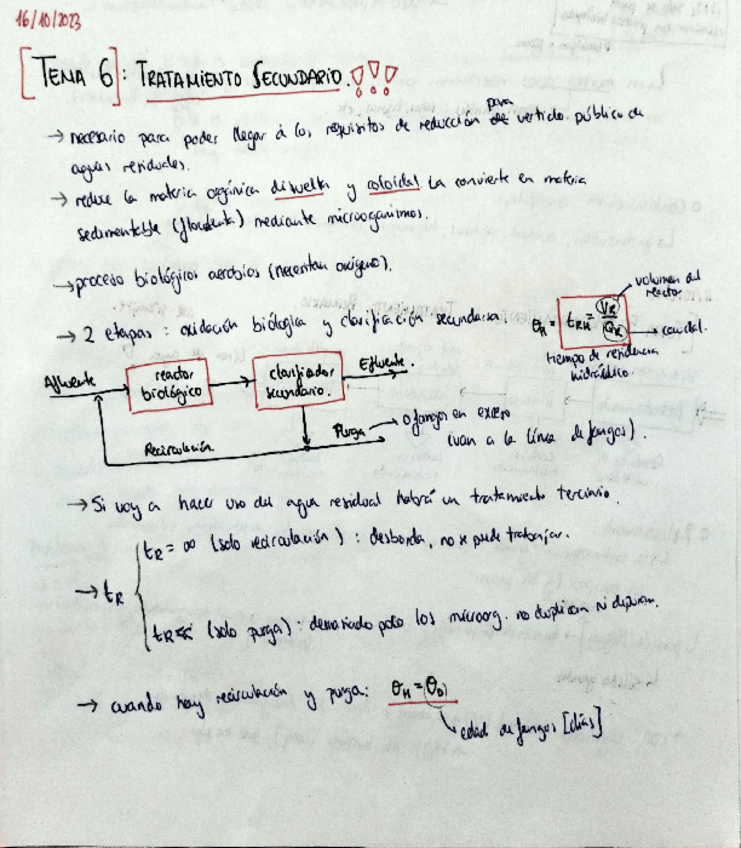 16/10/2023
[TEMA 6]: TRATAMIENTO SECUNDARIO.!!!
→ necesario para poder llegar a los requisitos de reducción para vertido público de
aguas residuales.
→ reduce la materia orgánica disuelta y coloidal la convierte en materia
sedimentable (floculenta) mediante microoganimos.
→ proceso biológicos aerobios (necesitan oxígeno).
→ 2 etapas: oxidación biológica y clarificación secundaria
θR = tRH = VR/QR
volumen del
reactor
caudal.
tiempo de residencia
hidráulico.
Afluente
reactor
biológico
clarifiador
secundario.
Efluente.
Recirculación
Purga → o fangos en exceso
(van a la línea de fangos).
→ Si voy a hacer uso del agua residual habrá un tratamiento terciario.
→ tR
tR = ∞ (solo recirculación): desborda, no se puede trabajar.
tR << (solo purga): demasiado poco los microorg. no duplican ni depuran.
→ cuando hay recirculación y purga: θH = θD
edad de fangos [días]